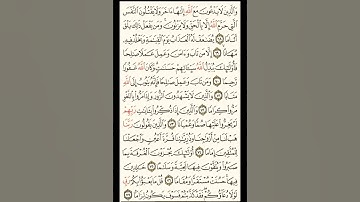 وَالَّذِينَ لَا يَدْعُونَ مَعَ اللَّهِ إِلَٰهًا ءَاخَرَ وَلَا يَقْتُلُونَ النَّفْسَ
الَّتِي حَرَّمَ اللَّهُ إِلَّا بِالْحَقِّ وَلَا يَزْنُونَ ۚ وَمَن يَفْعَلْ ذَٰلِكَ يَلْقَ
أَثَامًا ٦٨ يُضَٰعَفْ لَهُ الْعَذَابُ يَوْمَ الْقِيَٰمَةِ وَيَخْلُدْ فِيهِ
مُهَانًا ٦٩ إِلَّا مَن تَابَ وَءَامَنَ وَعَمِلَ عَمَلًا صَٰلِحًا
فَأُولَٰئِكَ يُبَدِّلُ اللَّهُ سَيِّئَاتِهِمْ حَسَنَٰتٍ ۗ وَكَانَ اللَّهُ غَفُورًا
رَّحِيمًا ٧٠ وَمَن تَابَ وَعَمِلَ صَٰلِحًا فَإِنَّهُ يَتُوبُ إِلَى اللَّهِ
مَتَابًا ٧١ وَالَّذِينَ لَا يَشْهَدُونَ الزُّورَ وَإِذَا مَرُّوا بِاللَّغْوِ
مَرُّوا كِرَامًا ٧٢ وَالَّذِينَ إِذَا ذُكِّرُوا بِـَٔايَٰتِ رَبِّهِمْ
لَمْ يَخِرُّوا عَلَيْهَا صُمًّا وَعُمْيَانًا ٧٣ وَالَّذِينَ يَقُولُونَ رَبَّنَا
هَبْ لَنَا مِنْ أَزْوَٰجِنَا وَذُرِّيَّٰتِنَا قُرَّةَ أَعْيُنٍ وَاجْعَلْنَا
لِلْمُتَّقِينَ إِمَامًا ٧٤ أُولَٰئِكَ يُجْزَوْنَ الْغُرْفَةَ بِمَا
صَبَرُوا وَيُلَقَّوْنَ فِيهَا تَحِيَّةً وَسَلَٰمًا ٧٥ خَٰلِدِينَ
فِيهَا ۚ حَسُنَتْ مُسْتَقَرًّا وَمُقَامًا ٧٦ قُلْ مَا يَعْبَؤُا بِكُمْ رَبِّي
لَوْلَا دُعَاؤُكُمْ ۖ فَقَدْ كَذَّبْتُمْ فَسَوْفَ يَكُونُ لِزَامًا ٧٧